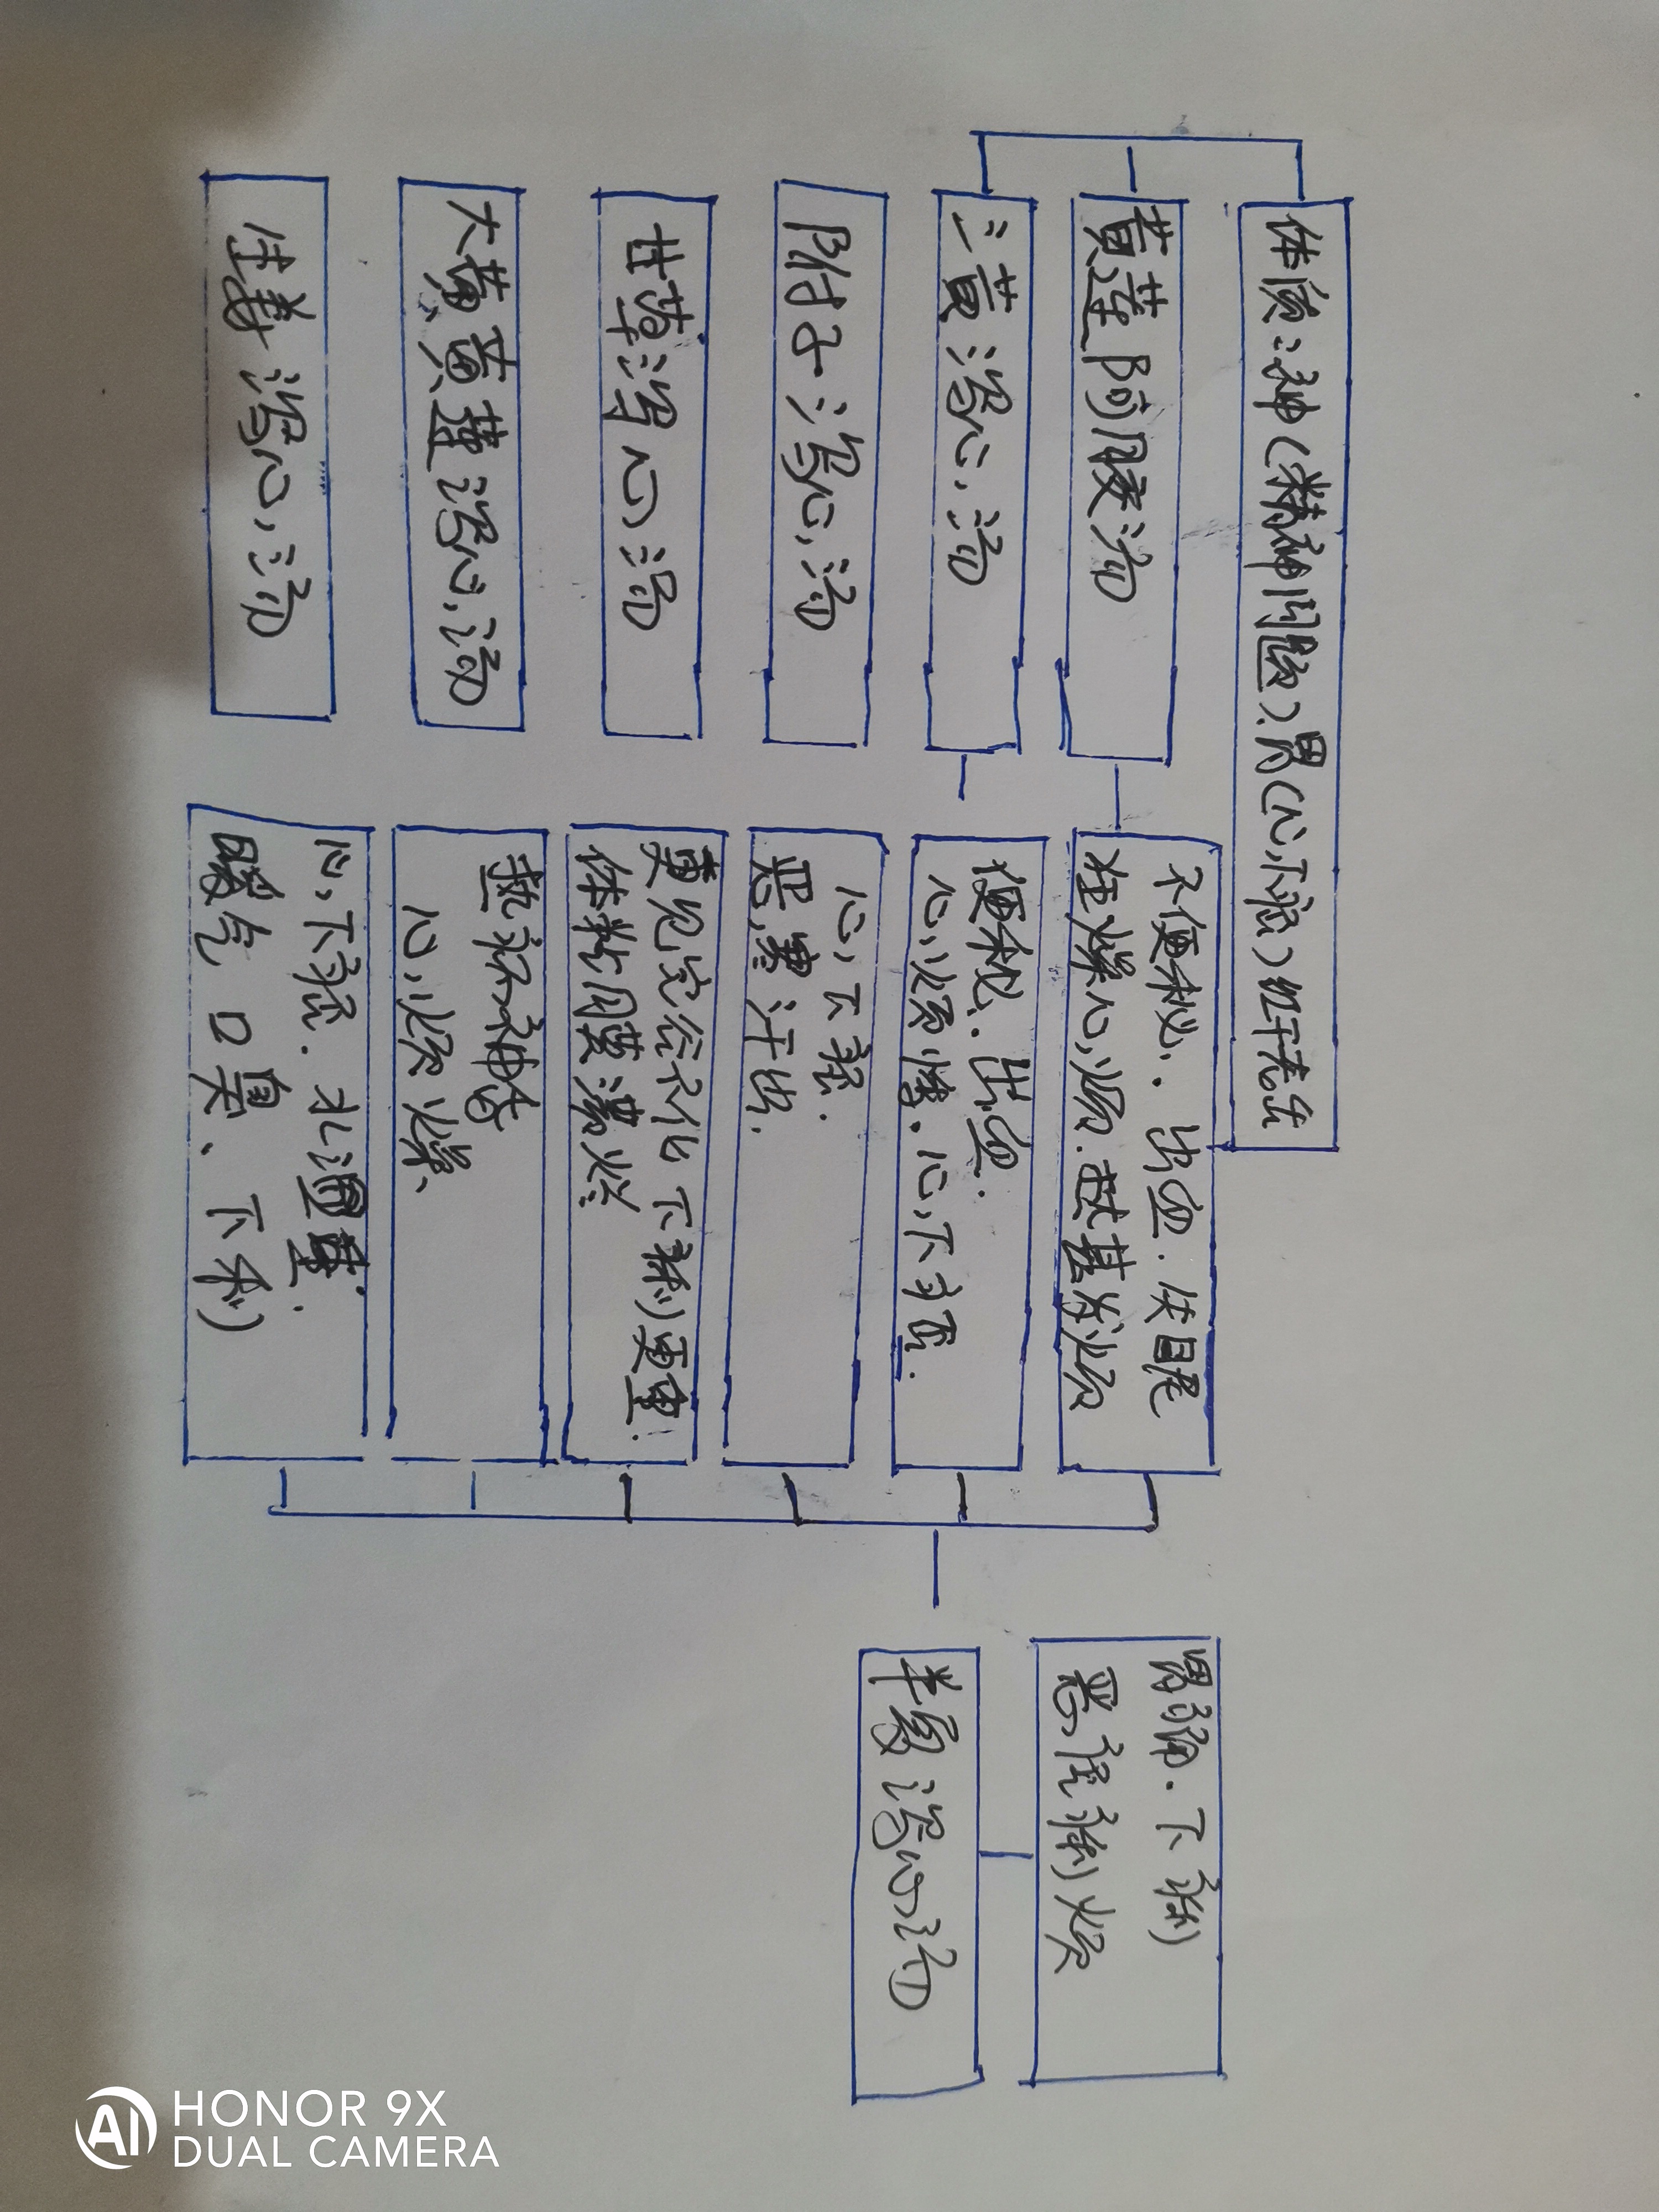 体质：神（精神问题）、胃（心下痞）红干老舌
黄莲阿胶汤
不便秘、出血.失眠
狂燥心烦.越甚为烦
三黄泻心汤
便秘.出血.
心烦悸.心下痞.
附子泻心汤
心下痞.
恶寒汗出.
甘草泻心汤
更见完谷不化下利更重!
体粘膜溃烂
大黄黄莲泻心汤
热痞神昏
心烦燥、
生姜泻心汤
心下痞.水湿重.
嗳气口臭、下利
胃痛.下利
恶痞利烦
半夏泻心汤
HONOR 9X
DUAL CAMERA
AI